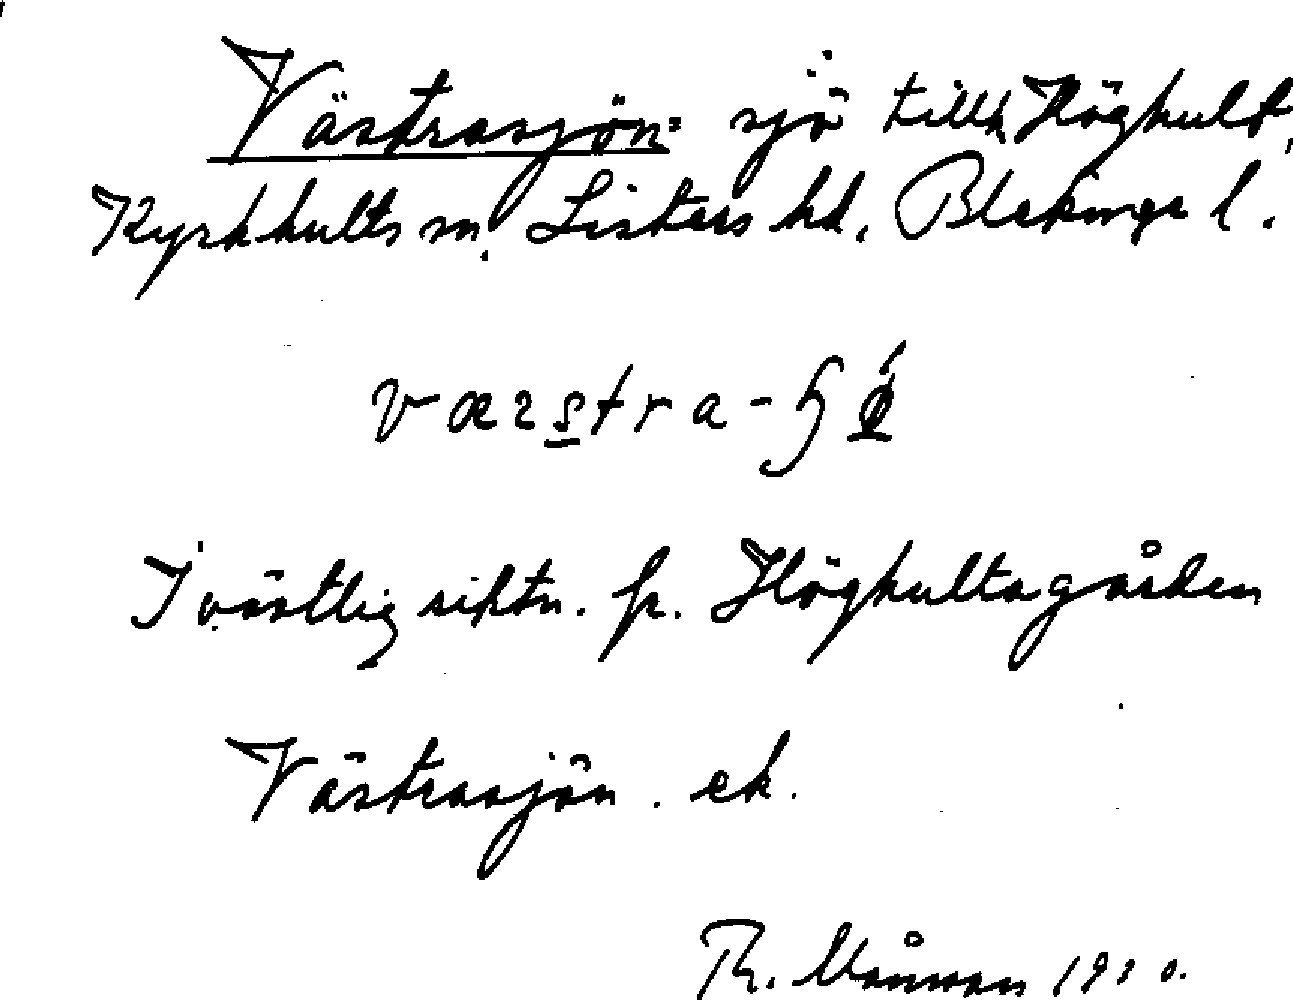 Västrasjön: sjö till Höghult,
Kyrkhults sn. Listers hd. Blekinge l.
I västlig riktn. fr. Höghultagården
Västrasjön. ek.
Th. Månsson